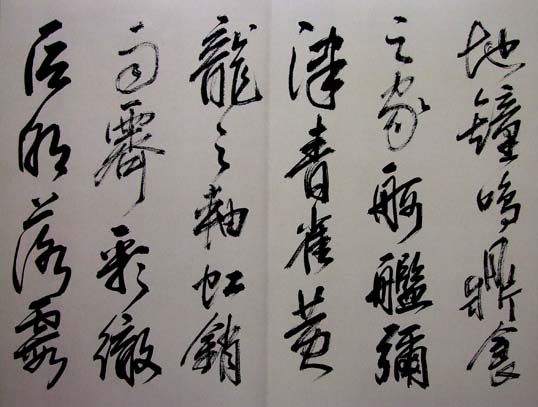 地鐘鳴鼎食
之家舸艦彌
津青雀黄
龍之軸虹銷
雨霽彩徹
區明落霞